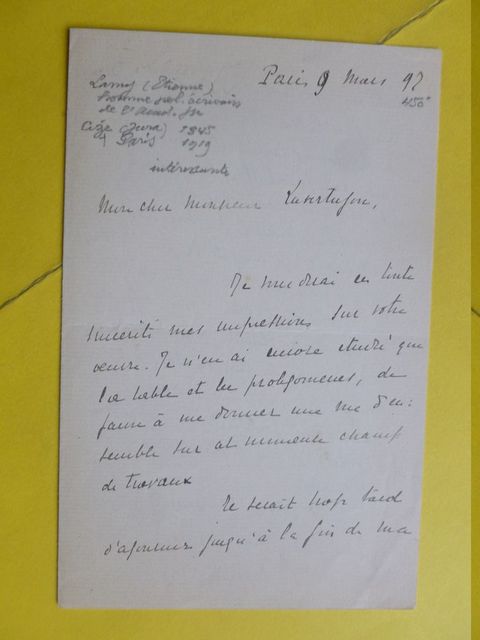 Paris 9 Mars 97
Lamy (Etienne)
homme pol. écrivain
de l'Acad. fse
Cize (Jura) 1845
Paris 1919
intéressante
Mon cher Monsieur
Je vous dirai en toute
sincérité mes impressions sur votre
œuvre. Je n'en ai encore étudié que
la table et les prolégomènes, de
façon à me donner une vue d'en-
semble sur cet immense champ
de travaux
Ce serait trop tard
d'ajourner jusqu'à la fin de ma